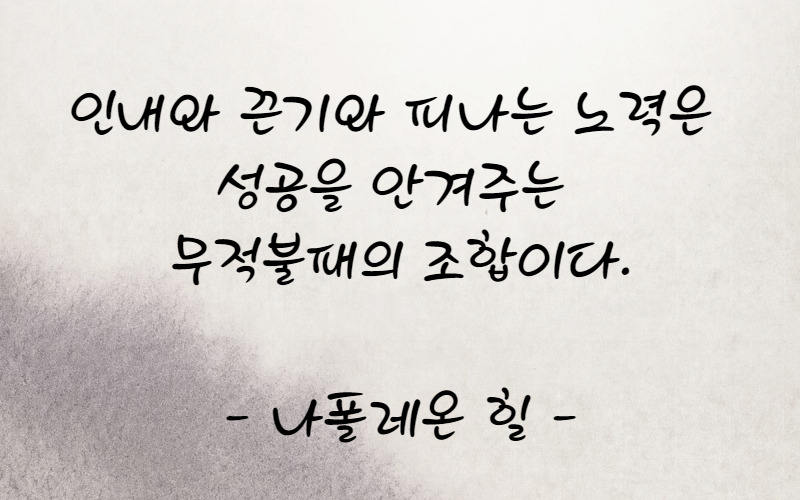 인내와 끈기와 피나는 노력은
성공을 안겨주는
무적불패의 조합이다.
- 나폴레온 힐 -